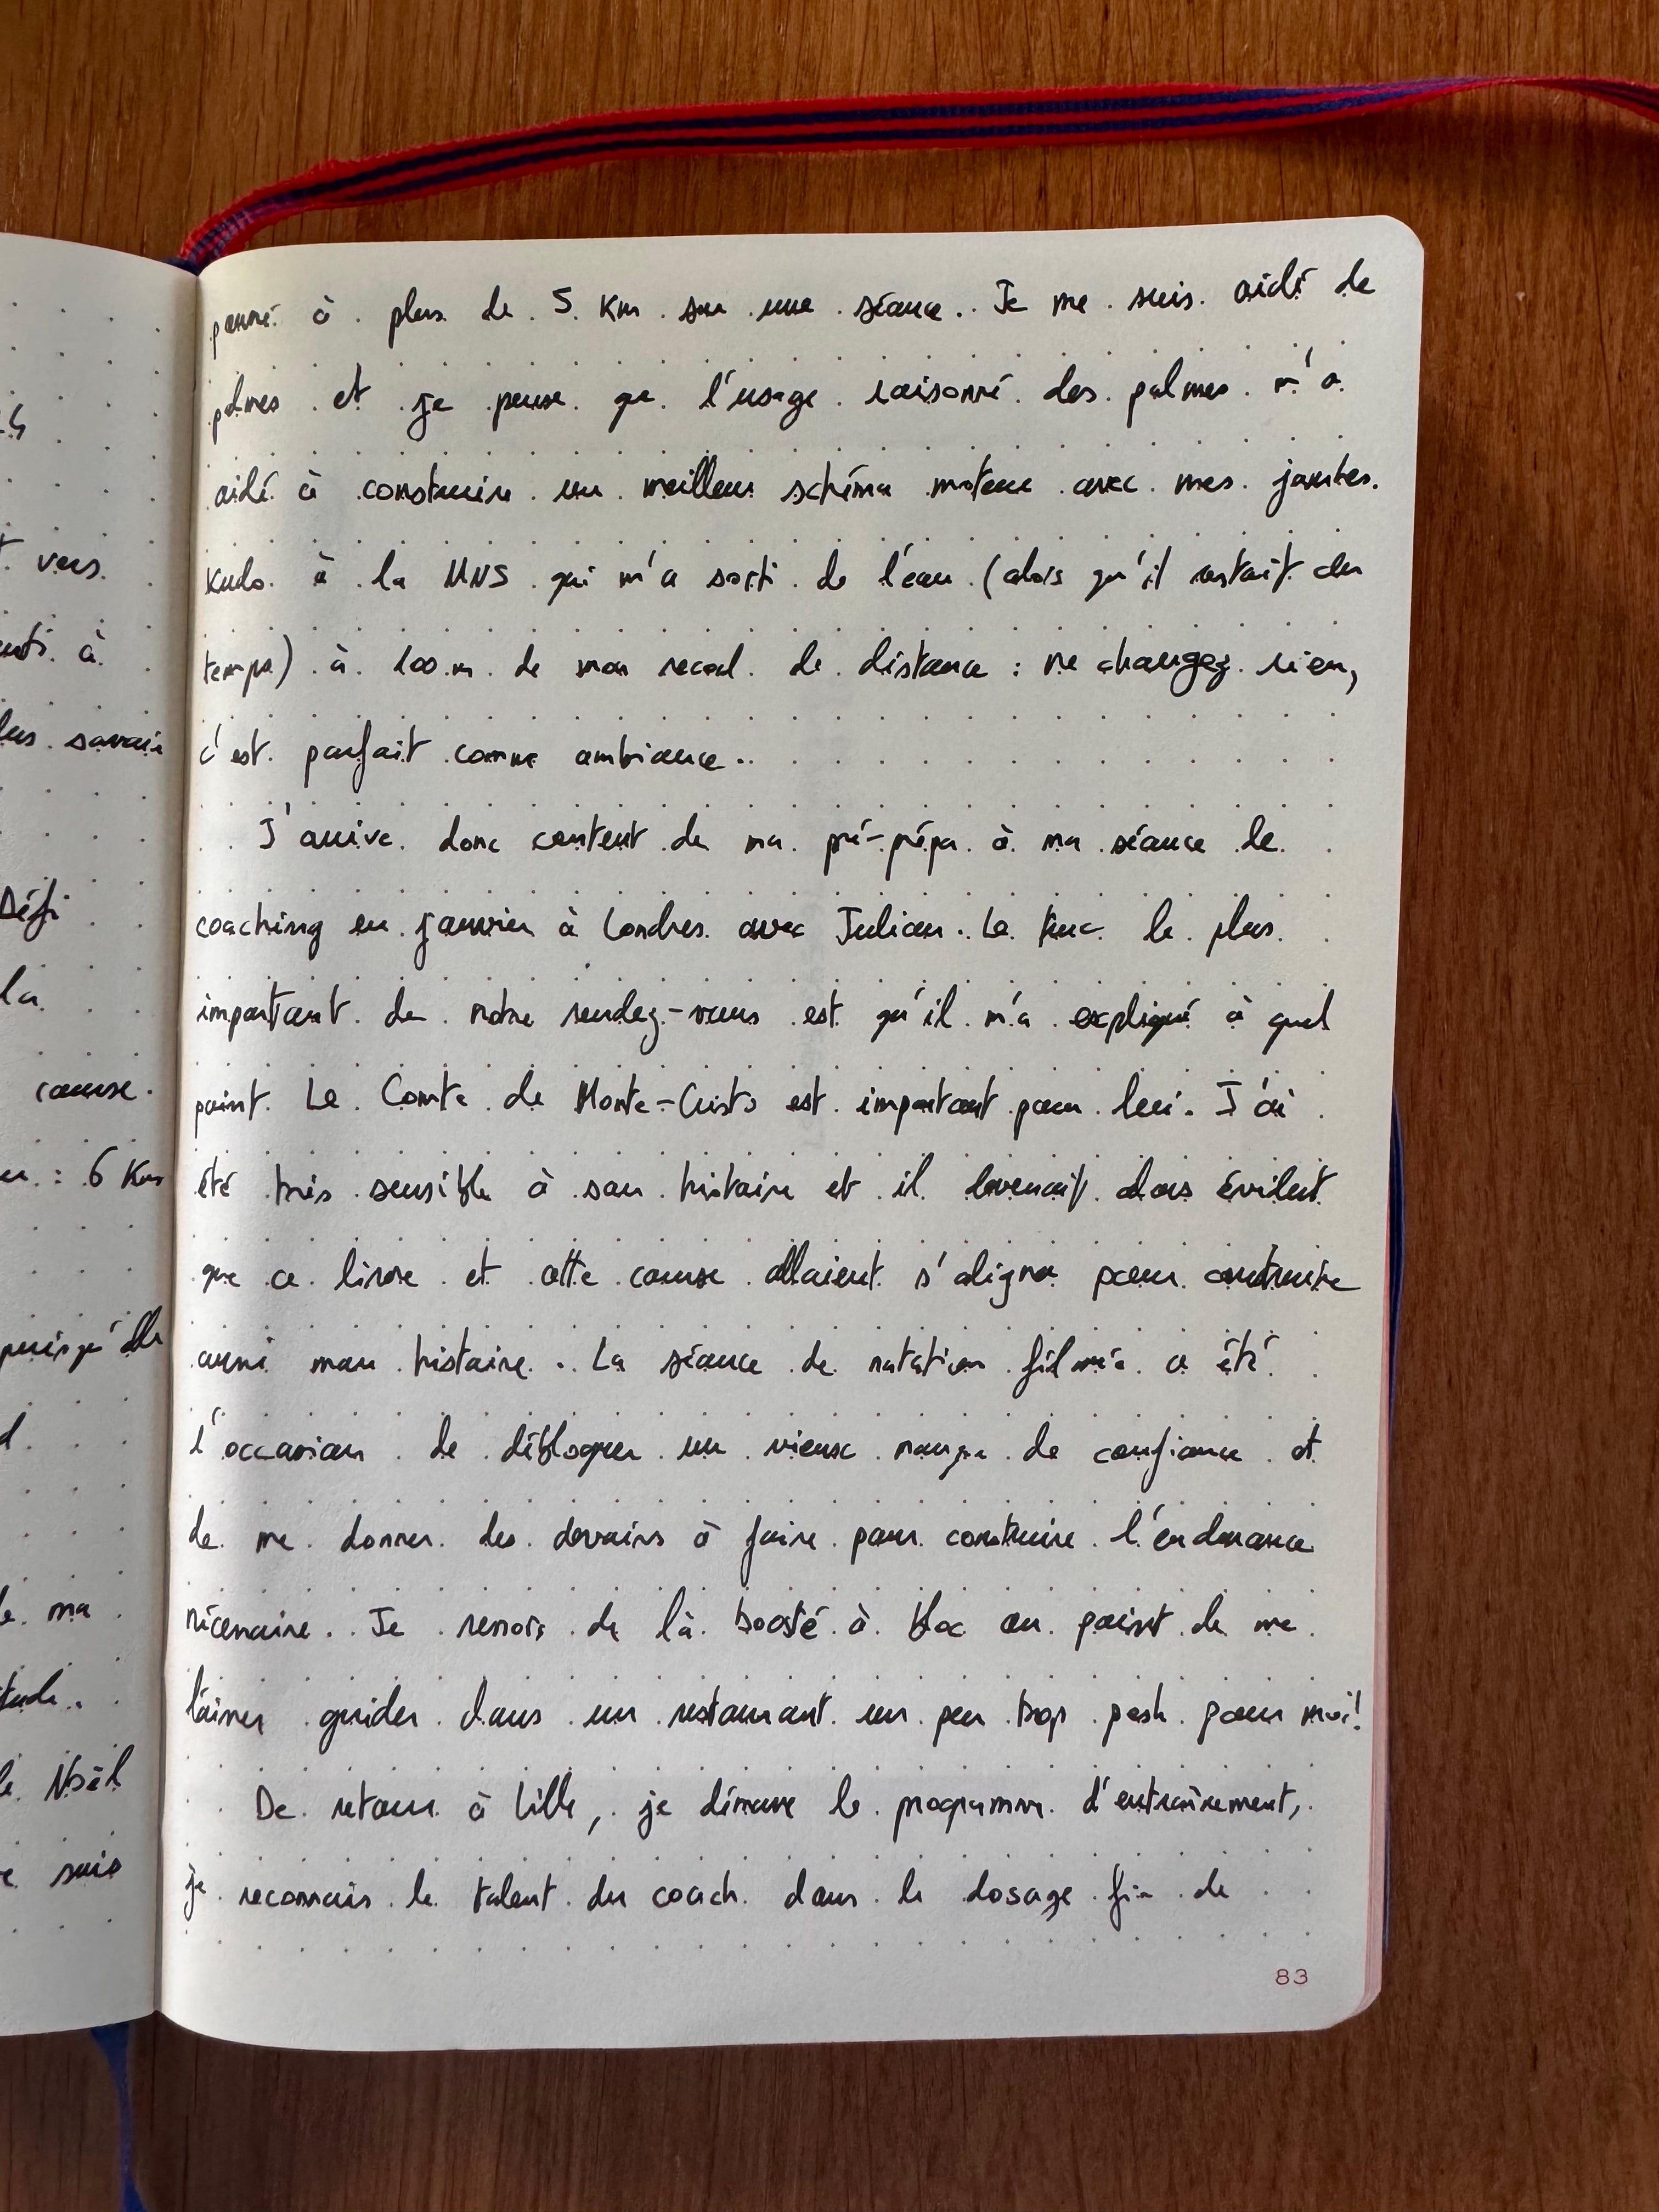 passé à plus de 5 Km sur une séance. Je me suis aidé de
palmes et je pense que l'usage raisonné des palmes m'a
aidé à construire un meilleur schéma moteur avec mes jambes.
Kudo à la MNS qui m'a sorti de l'eau (alors qu'il restait du
temps) à 100 m de mon record de distance : ne changez rien,
c'est parfait comme ambiance.
J'arrive donc content de ma pré-prépa à ma séance de
coaching en janvier à Londres avec Julian. Le truc le plus
important de notre rendez-vous est qu'il m'a expliqué à quel
point Le Comte de Monte-Cristo est important pour lui. J'ai
été très sensible à son histoire et il devenait alors évident
que ce livre et cette course allaient s'aligner pour construire
aussi mon histoire. La séance de natation filmée a été
l'occasion de débloquer un vieux manque de confiance et
de me donner des devoirs à faire pour construire l'endurance
nécessaire. Je ressors de là boosté à bloc au point de me
laisser guider dans un restaurant un peu trop posh pour moi!
De retour à Lille, je démarre le programme d'entraînement,
je reconnais le talent du coach dans le dosage fin de
83
vers
à
plus savoir
Défi
la
course.
: 6 Km
puisqu'elle
ma
Noël
suis